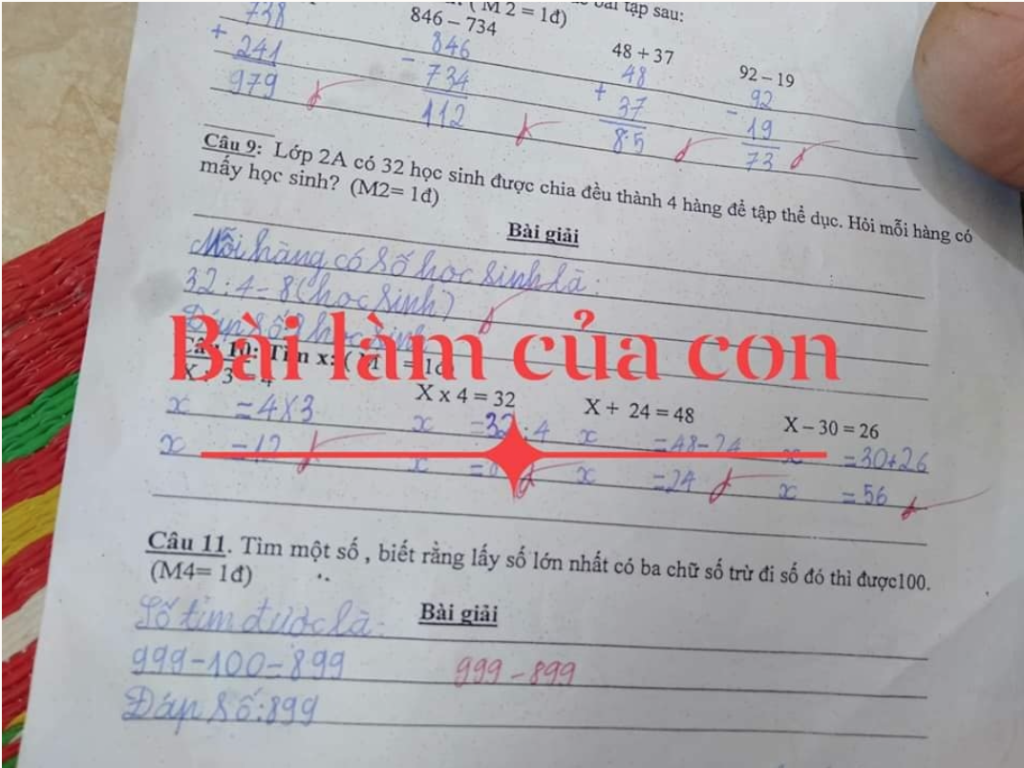 ( M 2 = 1đ) bài tập sau:
846 – 734
48 + 37
92 – 19
738
+ 241
979
846
- 734
112
48
+ 37
85
92
- 19
73
Câu 9: Lớp 2A có 32 học sinh được chia đều thành 4 hàng để tập thể dục. Hỏi mỗi hàng có
mấy học sinh? (M2= 1đ)
Bài giải
Mỗi hàng có số học sinh là:
32 : 4 = 8 (học sinh)
Đáp số 8 học sinh
Bài làm của con
Câu 10: Tìm x:
X x 4 = 32
X + 24 = 48
X – 30 = 26
x = 4 x 3
x = 12
x = 32 : 4
x = 8
x = 48 - 24
x = 24
x = 30 + 26
x = 56
Câu 11. Tìm một số , biết rằng lấy số lớn nhất có ba chữ số trừ đi số đó thì được100.
(M4= 1đ)
Bài giải
Số tìm được là:
999 - 100 = 899
999 - 899
Đáp số: 899